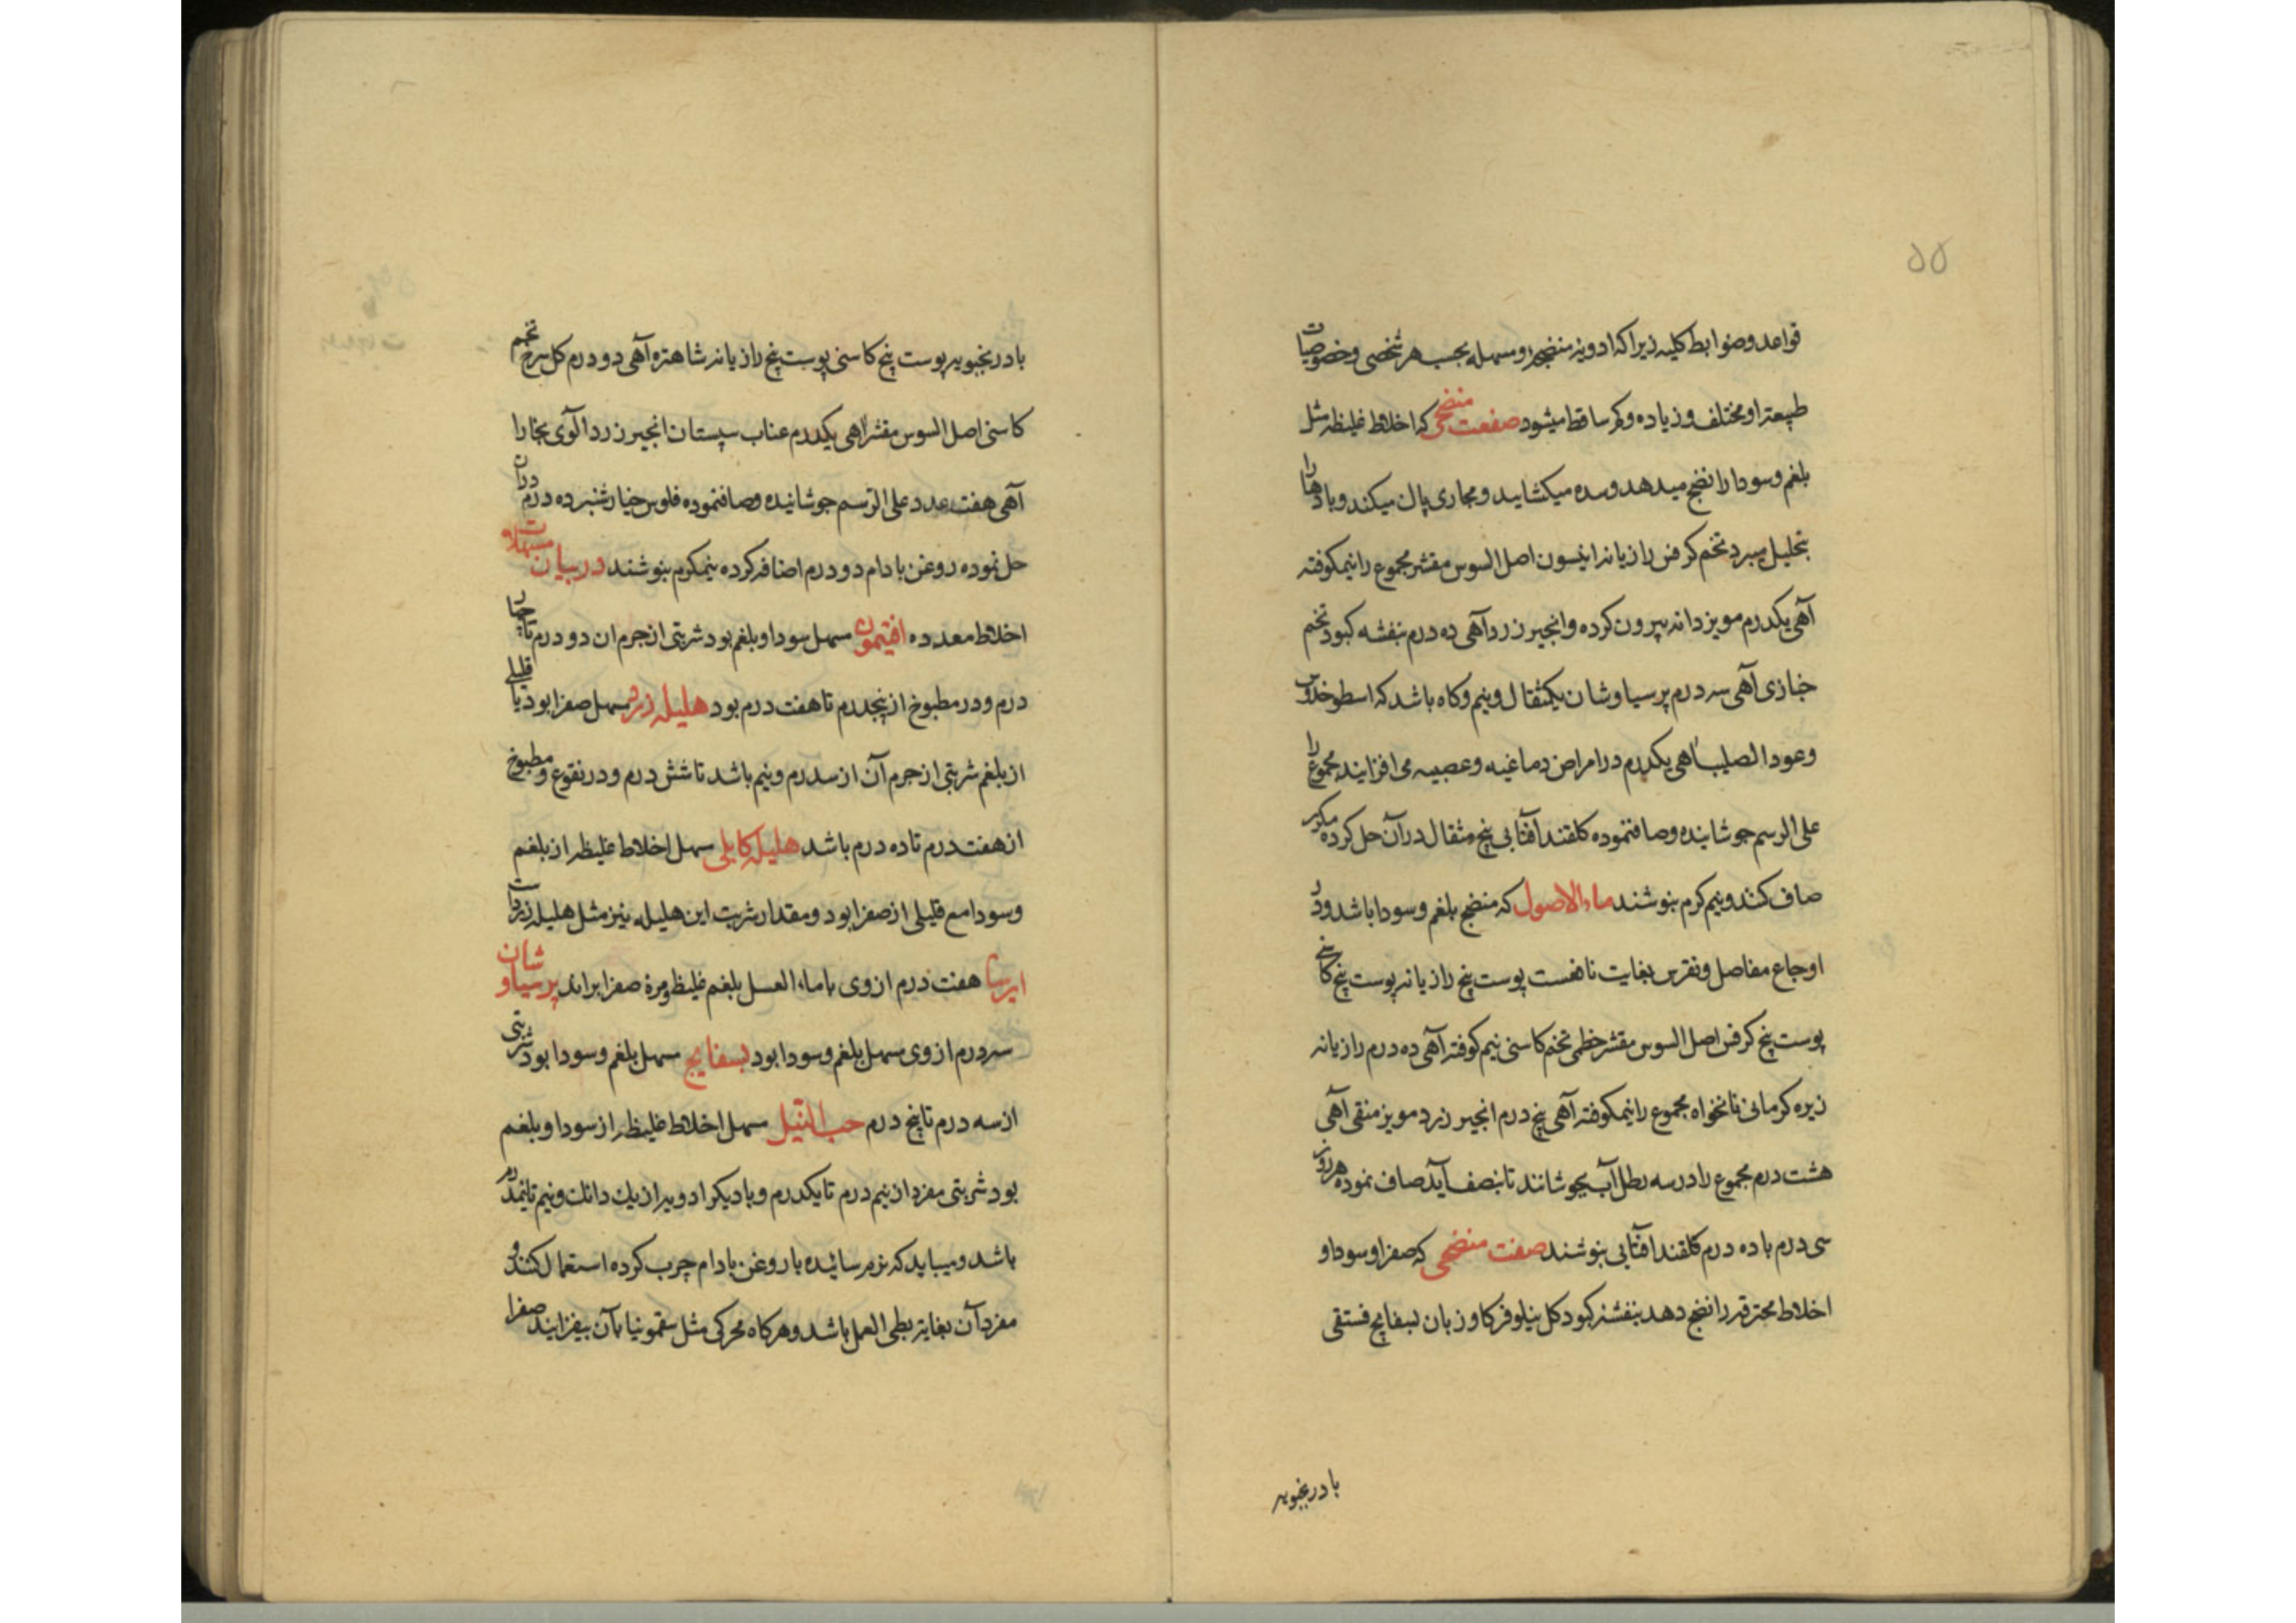 ۵۵
قواعد وضوابط کلیه زیرا که ادویه منضجه ومسهله بحسب هر شخصی وخصوصیات
طبیعته او مختلف و زیاده وکم ساقط میشود صفعت منضجی که اخلاط غلیظه مثل
بلغم وسودا را نضج میدهد وسده میکشاید ومجاری پاك میکند وبادها را
بتحلیل میبرد تخم کرفس رازیانه انیسون اصل السوس مقشر مجموع را نیمکوفته
آهی یکدرم مویز دانه بیرون کرده وانجیر زرد آهی ده درم بنفشه کبود تخم
خبازی آهی سه درم پرسیاوشان یکمثقال ونیم وکاه باشد که اسطوخدوس
وعود الصلیب اهی یکدرم در امراض دماغیه وعصبیه می افزایند مجموع را
علی الرسم جوشانیده وصافنموده کلقند آفتابی پنج مثقال درآن حل کرده مکرر
صاف کنند ونیم کرم بنوشند ماء الاصول که منضج بلغم وسودا باشد ودر
اوجاع مفاصل ونقرس بغایت نافعست پوست پنج رازیانه پوست پنج کاسنی
پوست پنج کرفس اصل السوس مقشر خطمی تخم کاسنی نیم کوفته آهی ده درم رازیانه
زیره کرمانی نانخواه مجموع را نیمکوفته آهی پنج درم انجیر زرد مویز منقی آهی
هشت درم مجموع را در سه رطل آب بجوشانند تا بنصف آید صاف نموده هر روز
سی درم با ده درم کلقند افتابی بنوشند صفت منضجی که صفرا وسودا و
اخلاط محترقه را نضج دهد بنفشه کبود کل نیلوفر کاو زبان بسفایج فستقی
بادرنجبویه
بادرنجبویه پوست پنج کاسنی پوست پنج رازیانه شاهتره آهی دو درم کل سرخ تخم
کاسنی اصل السوس مقشر اهی یکدرم عناب سپستان انجیر زرد آلوی بخارا
آهی هفت عدد علی الرسم جوشانیده وصافنموده فلوس خیارشنبر ده درم دران
حل نموده روغن بادام دو درم اضافه کرده نیمکرم بنوشند در بیان مسهلات
اخلاط معدده افتیمون مسهل سودا وبلغم بود شربتی از جرم ان دو درم تا چهار
درم ودر مطبوخ از پنجدرم تا هفت درم بود هلیله زرد مسهل صفرا بود با قلیلی
از بلغم شربتی از جرم آن از سدرم ونیم باشد تا شش درم ودر نقوع ومطبوخ
از هفت درم تا ده درم باشد هلیله کابلی مسهل اخلاط غلیظه از بلغم
وسودا مع قلیلی از صفرا بود ومقدار شربت این هلیله نیز مثل هلیله زرداست
ایرسا هفت درم از وی باماء العسل بلغم غلیظ ومرة صفرا براند پرسیاوشان
سه درم از وی مسهل بلغم وسودا بود بسفایج مسهل بلغم وسودا بود شربتی
از سه درم تا پنج درم حب النیل مسهل اخلاط غلیظه از سودا وبلغم
بود شربتی مفرد از نیم درم تا یکدرم وبا دیکر ادویه از یك دانك ونیم تا نیمدرم
باشد ومیباید که نرم سائیده با روغن بادام چرب کرده استعمال کنند و
مفرد آن بغایت بطی العمل باشد وهرکاه محرکی مثل سقمونیا بآن بیفزایند صفرا